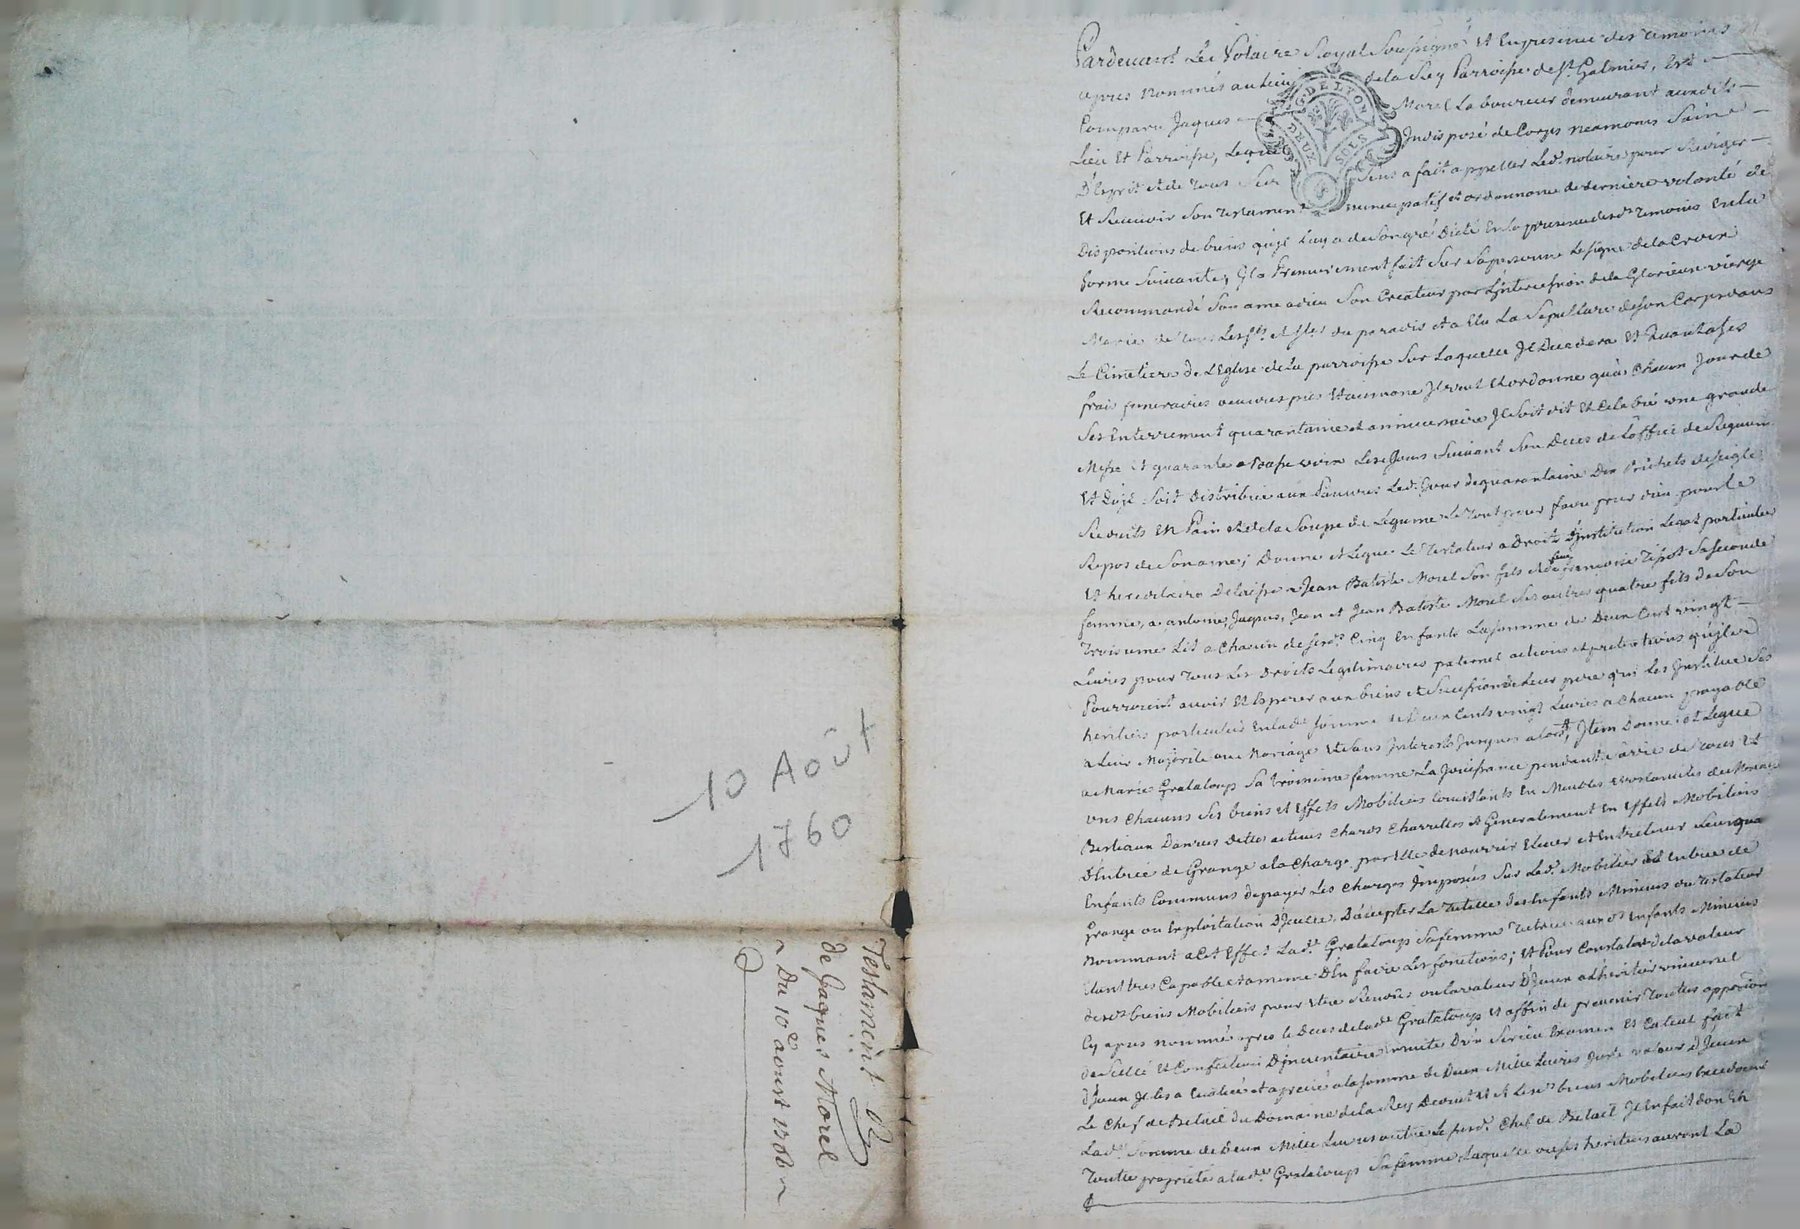 10 Août
1760
Testament
de Jaques Morel
Du 10e aoust 1760
G. DE LYON
DEUX SOLS
Pardevant Le Notaire Royal Soussigné et En presence des temoins
apres Nommés au Lieu de la Rey Parroisse de St. Galmier, Est
Comparu Jaques Morel Laboureur demeurant auxdits
Lieu Et Parroisse, Lequel Indisposé de Corps neamoins Saint
D'Esprit et de tous Ses Sens a fait appeller Led. notaire pour Rediger
Et Recevoir Son testament nuncupatif et ordonnance de derniere volonté de
Dispositions de biens qu'il luy a de Son gré Dicté En la presence desd. temoins En la
forme Suivante, Il a Premierement fait Sur Sa personne Le Signe de la Croix
Recommandé Son ame a dieu Son Createur par L'intercession de la Glorieuse vierge
Marie de tous Les Sts. et Stes. du paradis et a Elu La Sepulture de Son Corps dans
Le Cimetiere de L'Eglise de la parroisse Sur Laquelle Il Decedera Et Quant a Ses
frais funeraires oeuvres pies Et aumone Il veut Et ordonne qu'a Chacun Jour de
Ses Enterrement quarantaine et anniversaire Il Soit dit Et Celebré une grande
Messe Et quarante a basse voix Les Jours Suivant Son Deces de L'office de Requiem
Et qu'il Soit Distribué aux Pauvres Led. Jour de quarantaine Dix Bichets de Seigle
Reduits En Pain et de la Soupe de Legume Le tout pour faire prier dieu pour le
Repos de Son ame; Donne et Legue Le Testateur a Droit D'institution Legat particulier
Et hereditaire Delaisse a Jean Batiste Morel Son fils et de feue françoise Tissot Sa Seconde
femme, a antoine, Jaques, Jean et Jean Batiste Morel Ses autres quatre fils de Son
troisieme Lit a Chacun de Sesd. Cinq Enfants La Somme de Deux Cent vingt
Livres pour tous Les Droits Legitimaires paternel actions et pretentions qu'ils
Pourroient avoir Et Esperer aux biens et Succession de Leur pere qui Les Institue Ses
heritiers particuliers En lad. Somme de Deux Cents vingt Livres a Chacun payable
a Leur Majorité ou Mariage Et Sans Interests Jusques alors, Item Donne et Legue
a Marie Grataloup Sa troisieme femme La Jouissance pendant Sa vie de tous Et
uns Chacuns Ses biens et Effets Mobiliers Consistants En Meubles
Bestiaux Danrées Dette actives Chards Charrettes et Generalement En Effets Mobiliers
D'Entrée de Grange a la Charge par Elle de nourrir Elever et Entretenir Leurs
Enfants Communs de payer Les Charges Imposées Sur Lad. Mobilier Entrée de
Grange ou Exploitation D'Icelle, D'accepter La Tutelle des Enfants Mineurs du Testateur
Nommant a Cet Effet Lad. Grataloup Sa femme Tutrice auxd. Enfants Mineurs
Etant tres Capable D'En faire Les fonctions; Et Pour Constater de la valeur
desd. biens Mobiliers pour Etre Remis ou la valeur D'Iceux a L'heritier universel
Cy apres nommé apres le Deces de lad. Grataloup Et affin de prevenir toutes apposition
de Scellé Et Confection D'inventaire Ensuite D'un Serieux Examen Et Calcul fait
d'Iceux Il les a Evalués et apreciés a la Somme de Deux Mille Livres Juste valeur D'Iceux
Le Chef de Betail du Domaine de la Rey Deduit Et Lesd. biens Mobiliers
Lad. Somme de Deux Mille Livres outre Le Susd. Chef de Betail Il En fait don En
Toutte proprieté a lad. Grataloup Sa femme Laquelle ou Ses heritiers auront La